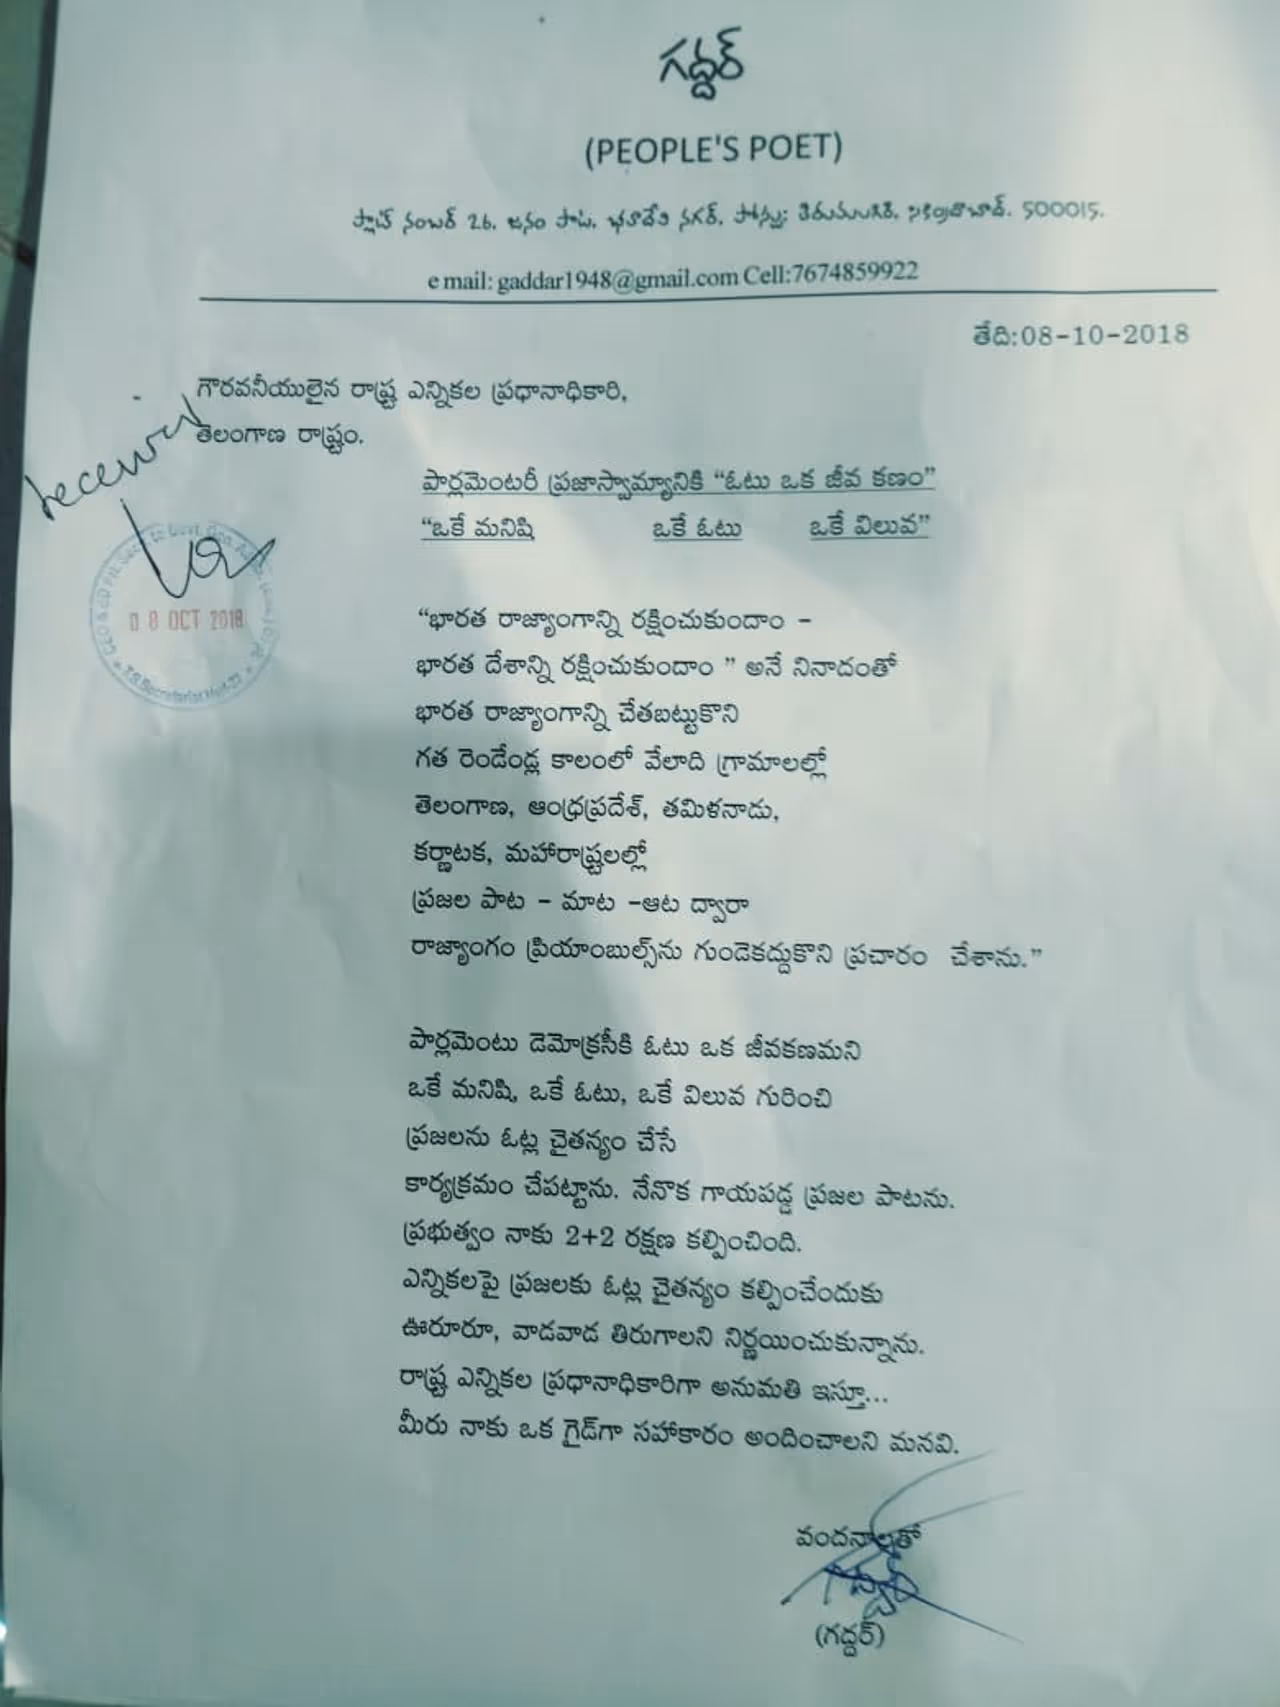 గద్దర్
(PEOPLE'S POET)
ప్లాట్ నంబర్ 26, జనం పాట, భూదేవి నగర్, పోస్టు: తిరుమలగిరి, సికింద్రాబాద్. 500015.
e mail: gaddar1948@gmail.com Cell:7674859922
తేది:08-10-2018
గౌరవనీయులైన రాష్ట్ర ఎన్నికల ప్రధానాధికారి,
తెలంగాణ రాష్ట్రం.
received
పార్లమెంటరీ ప్రజాస్వామ్యానికి “ఓటు ఒక జీవ కణం”
“ఒకే మనిషి ఒకే ఓటు ఒకే విలువ”
08 OCT 2018
“భారత రాజ్యాంగాన్ని రక్షించుకుందాం –
భారత దేశాన్ని రక్షించుకుందాం ” అనే నినాదంతో
భారత రాజ్యాంగాన్ని చేతబట్టుకొని
గత రెండేండ్ల కాలంలో వేలాది గ్రామాలల్లో
తెలంగాణ, ఆంధ్రప్రదేశ్, తమిళనాడు,
కర్ణాటక, మహారాష్ట్రలల్లో
ప్రజల పాట – మాట –ఆట ద్వారా
రాజ్యాంగం ప్రియాంబుల్స్‌ను గుండెకద్దుకొని ప్రచారం చేశాను.”
పార్లమెంటు డెమోక్రసీకి ఓటు ఒక జీవకణమని
ఒకే మనిషి, ఒకే ఓటు, ఒకే విలువ గురించి
ప్రజలను ఓట్ల చైతన్యం చేసే
కార్యక్రమం చేపట్టాను. నేనొక గాయపడ్డ ప్రజల పాటను.
ప్రభుత్వం నాకు 2+2 రక్షణ కల్పించింది.
ఎన్నికలపై ప్రజలకు ఓట్ల చైతన్యం కల్పించేందుకు
ఊరూరూ, వాడవాడ తిరుగాలని నిర్ణయించుకున్నాను.
రాష్ట్ర ఎన్నికల ప్రధానాధికారిగా అనుమతి ఇస్తూ...
మీరు నాకు ఒక గైడ్‌గా సహకారం అందించాలని మనవి.
వందనాల్తతో
గద్దర్
(గద్దర్)